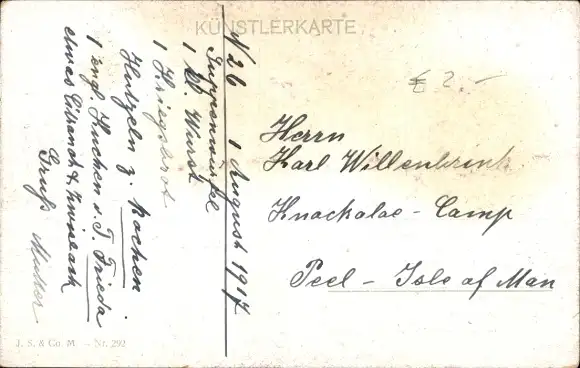 KÜNSTLERKARTE
N/26 1 August 1917
Suppenwürfel
1 Bl. Wurst
1 Kriegsbrot
Hutzeln z. Kochen
1 engl. Kuchen v. T. Frieda
etwas & Zwieback
Gruß Mutter
€ 2.-
Herrn
Karl Willenbrink
Knockaloe - Camp
Peel - Isle of Man
J. S. & Co. M. - Nr. 292